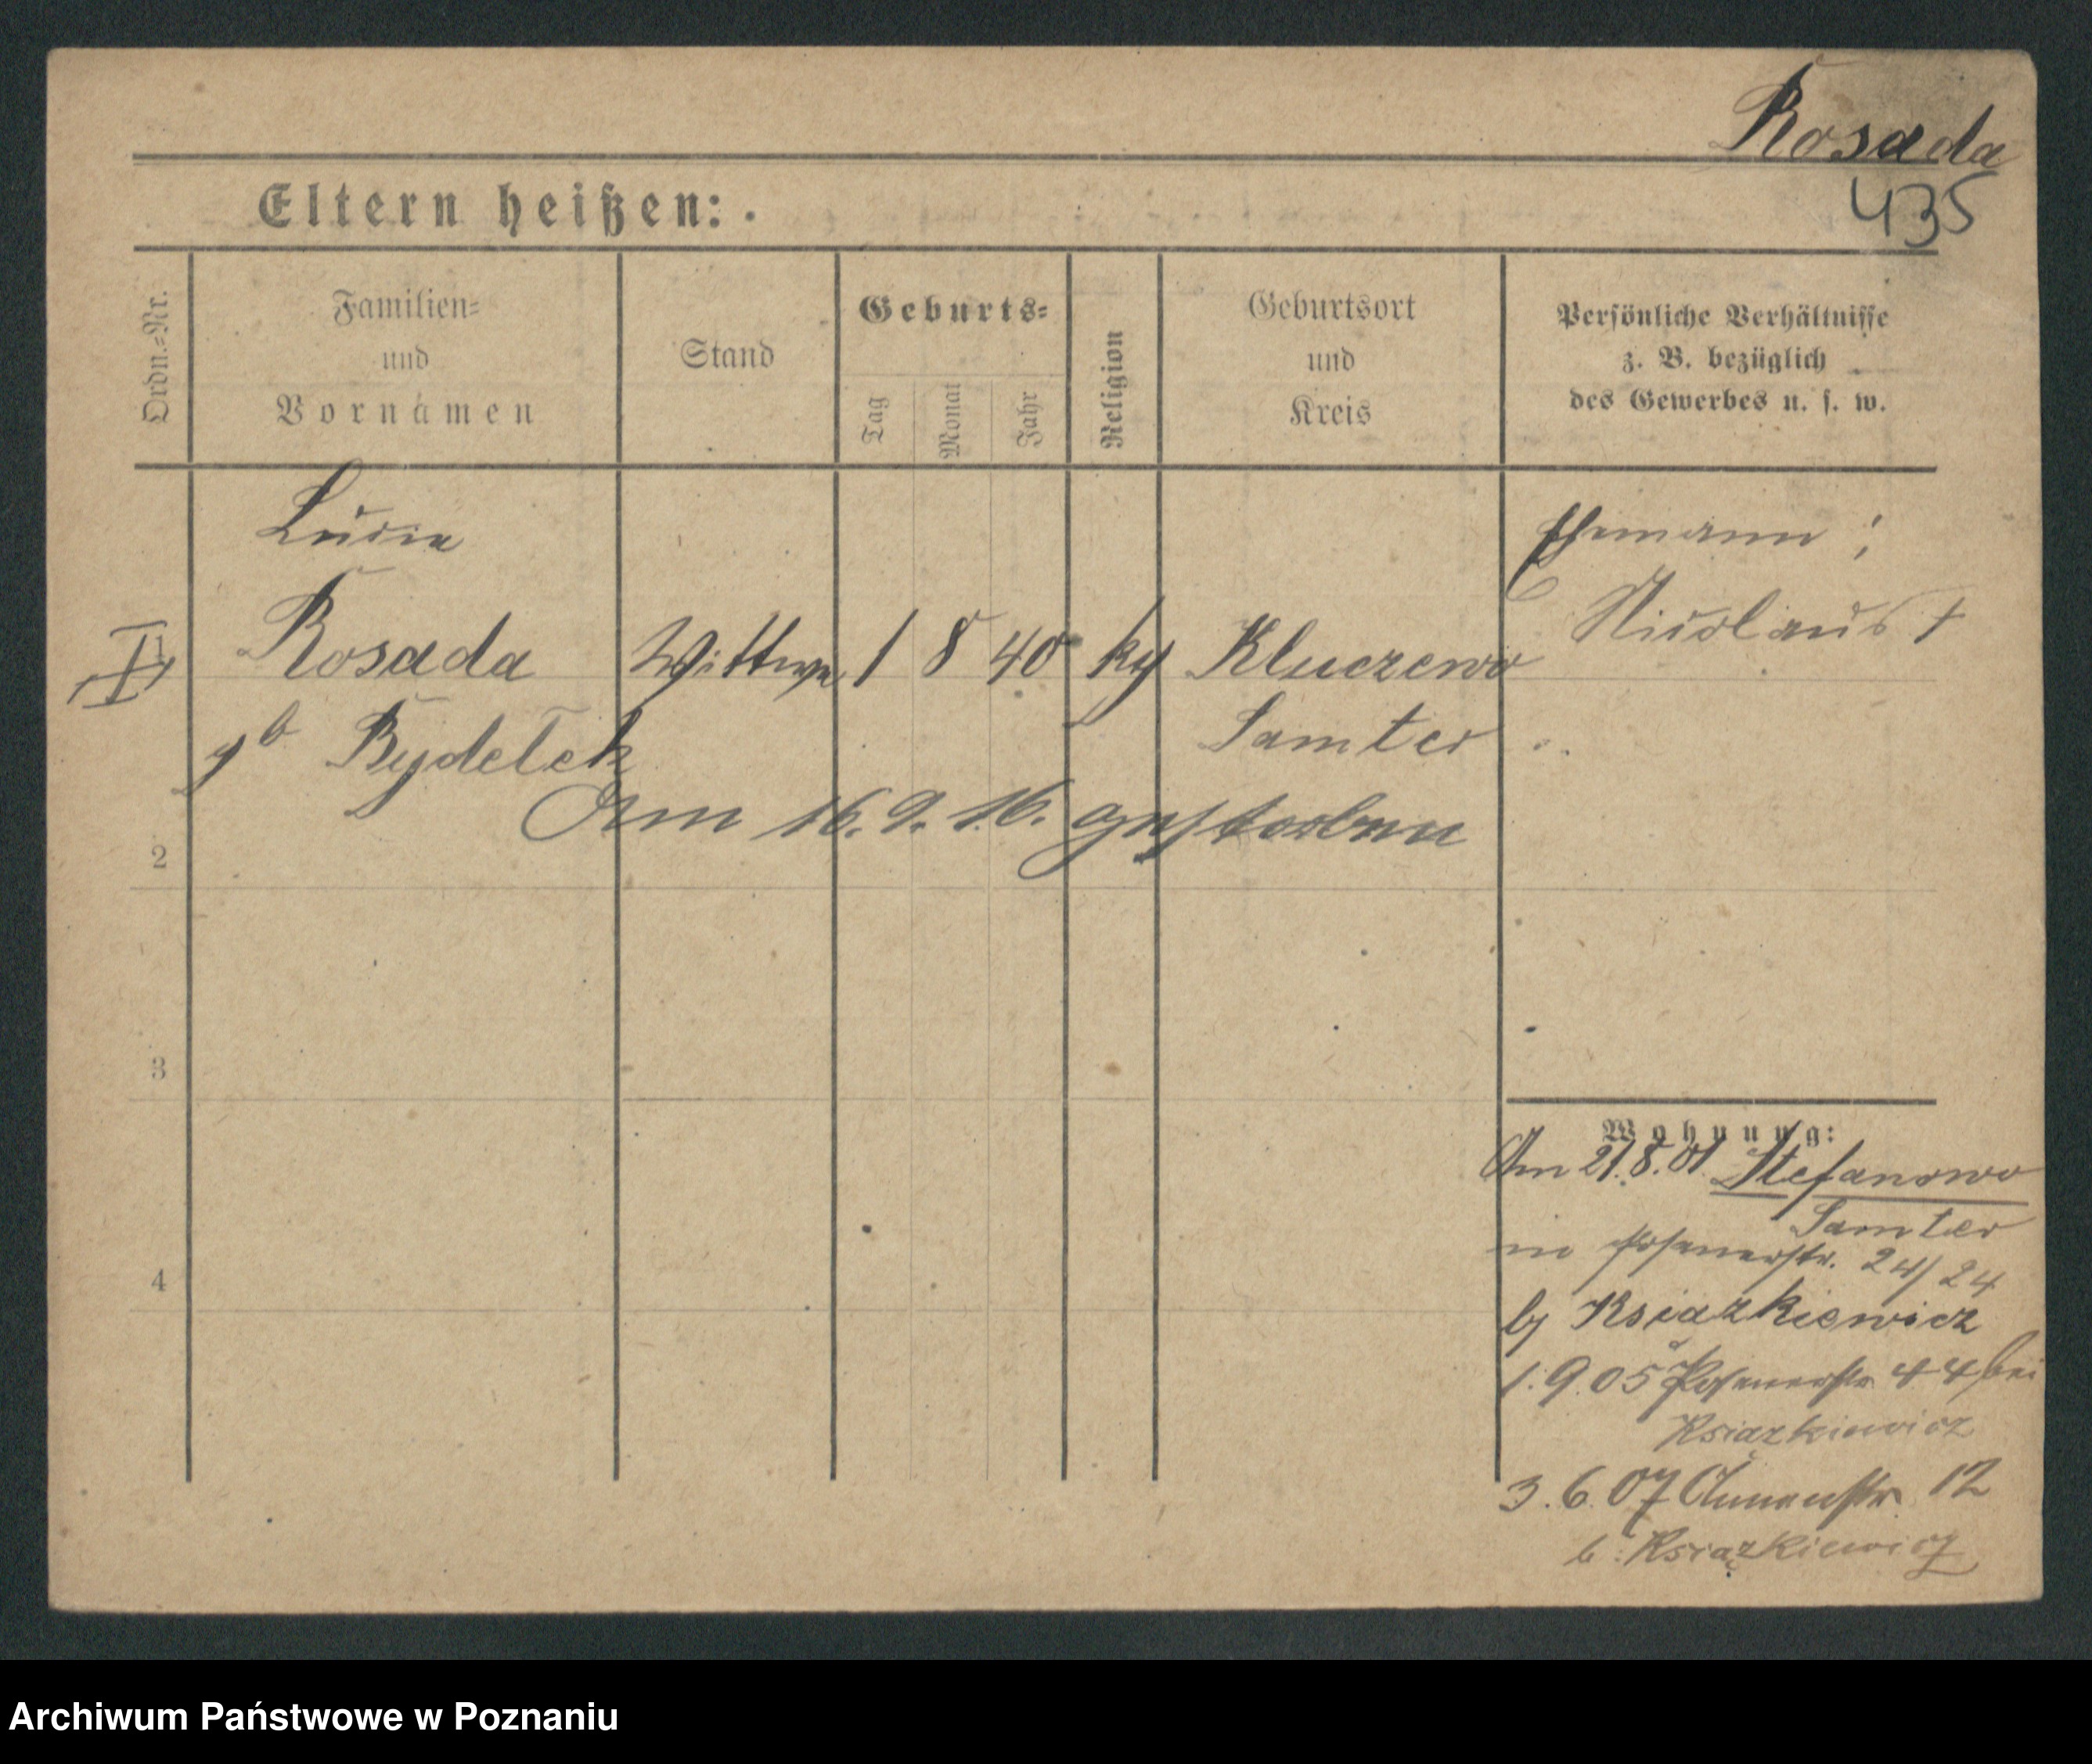 Rosada
435
Eltern heißen:
Ordn.=Nr.
Familien=
und
Vornamen
Stand
Geburts=
Tag
Monat
Jahr
Religion
Geburtsort
und
Kreis
Persönliche Verhältnisse
z. B. bezüglich
des Gewerbes u. s. w.
Ehemann;
Nicolaus †
II
1
Rosada Wittwe 1 8 40 Kluczewo
gb Rydelek Samter
Am 16. 9. 16. gestorben
2
3
4
Wohnung:
Am 21.8.01. Stefanowo
Samter
in Posenerstr. 24/24
by Ksiazkiewicz
1.9.05 Posenerstr 44 bei
Ksiązkiewicz
3.6.07 Annenstr 12
b: Ksiązkiewicz
Archiwum Państwowe w Poznaniu